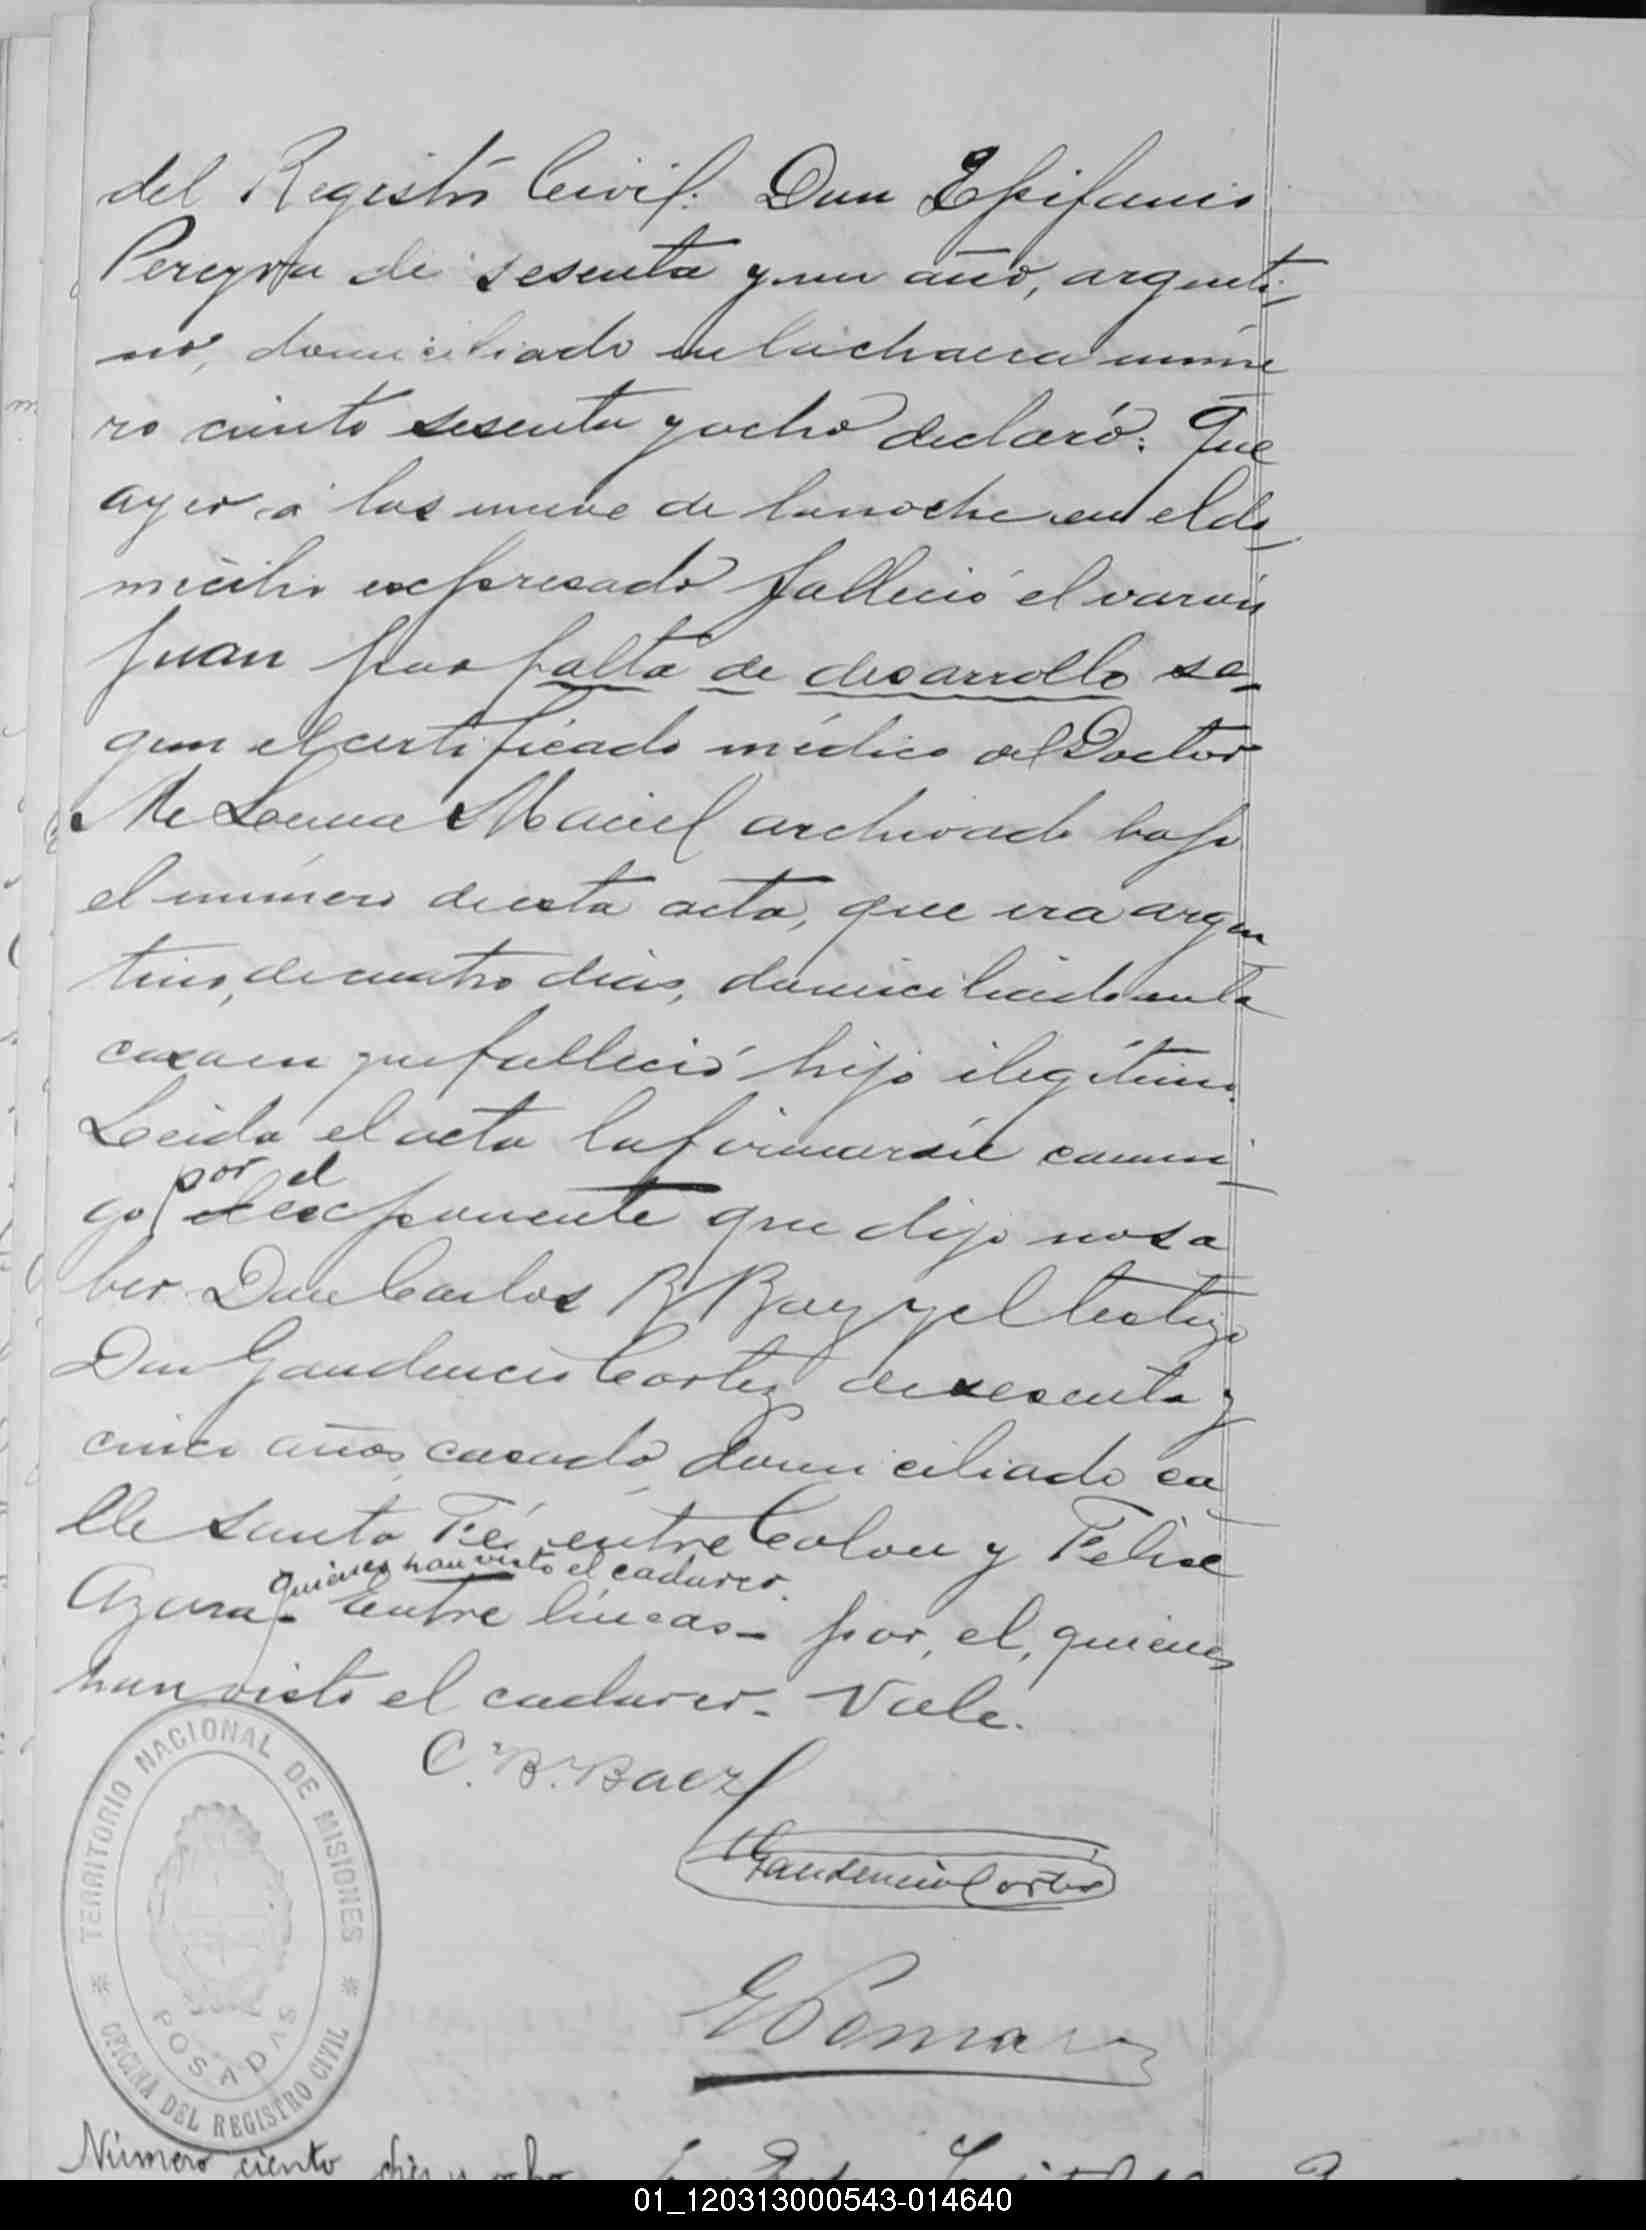 del Registro Civil: Don Epifanio
Pereyra de sesenta y un año, argenti-
no, domiciliado en la chacra núme
ro ciento sesenta y ocho declaró: Que
ayer á las nueve de la noche en el do-
micilio expresado falleció el varón
Juan por falta de desarrollo se-
gun el certificado médico del Doctor
Maciel archivado bajo
el número de esta acta, que era argen
tino, de cuatro dias, domiciliado en la
casa en que falleció hijo ilegítimo.
Leida el acta la firmaron conmi-
por el
go el exponente que dijo no sa
ber Don Carlos B Baez y el testigo
Don Gaudencio Cortez de sesenta y
cinco años, casado, domiciliado ca-
lle Santa Fé entre Colon y Felix
quienes han visto el cadaver.
Azara - Entre líneas - por, el, quienes
han visto el cadaver - Vale.
C. B. Baez
Gaudencio Cortez
TERRITORIO NACIONAL DE MISIONES
POSADAS
OFICINA DEL REGISTRO CIVIL
Número ciento diez y ocho
01_120313000543-014640